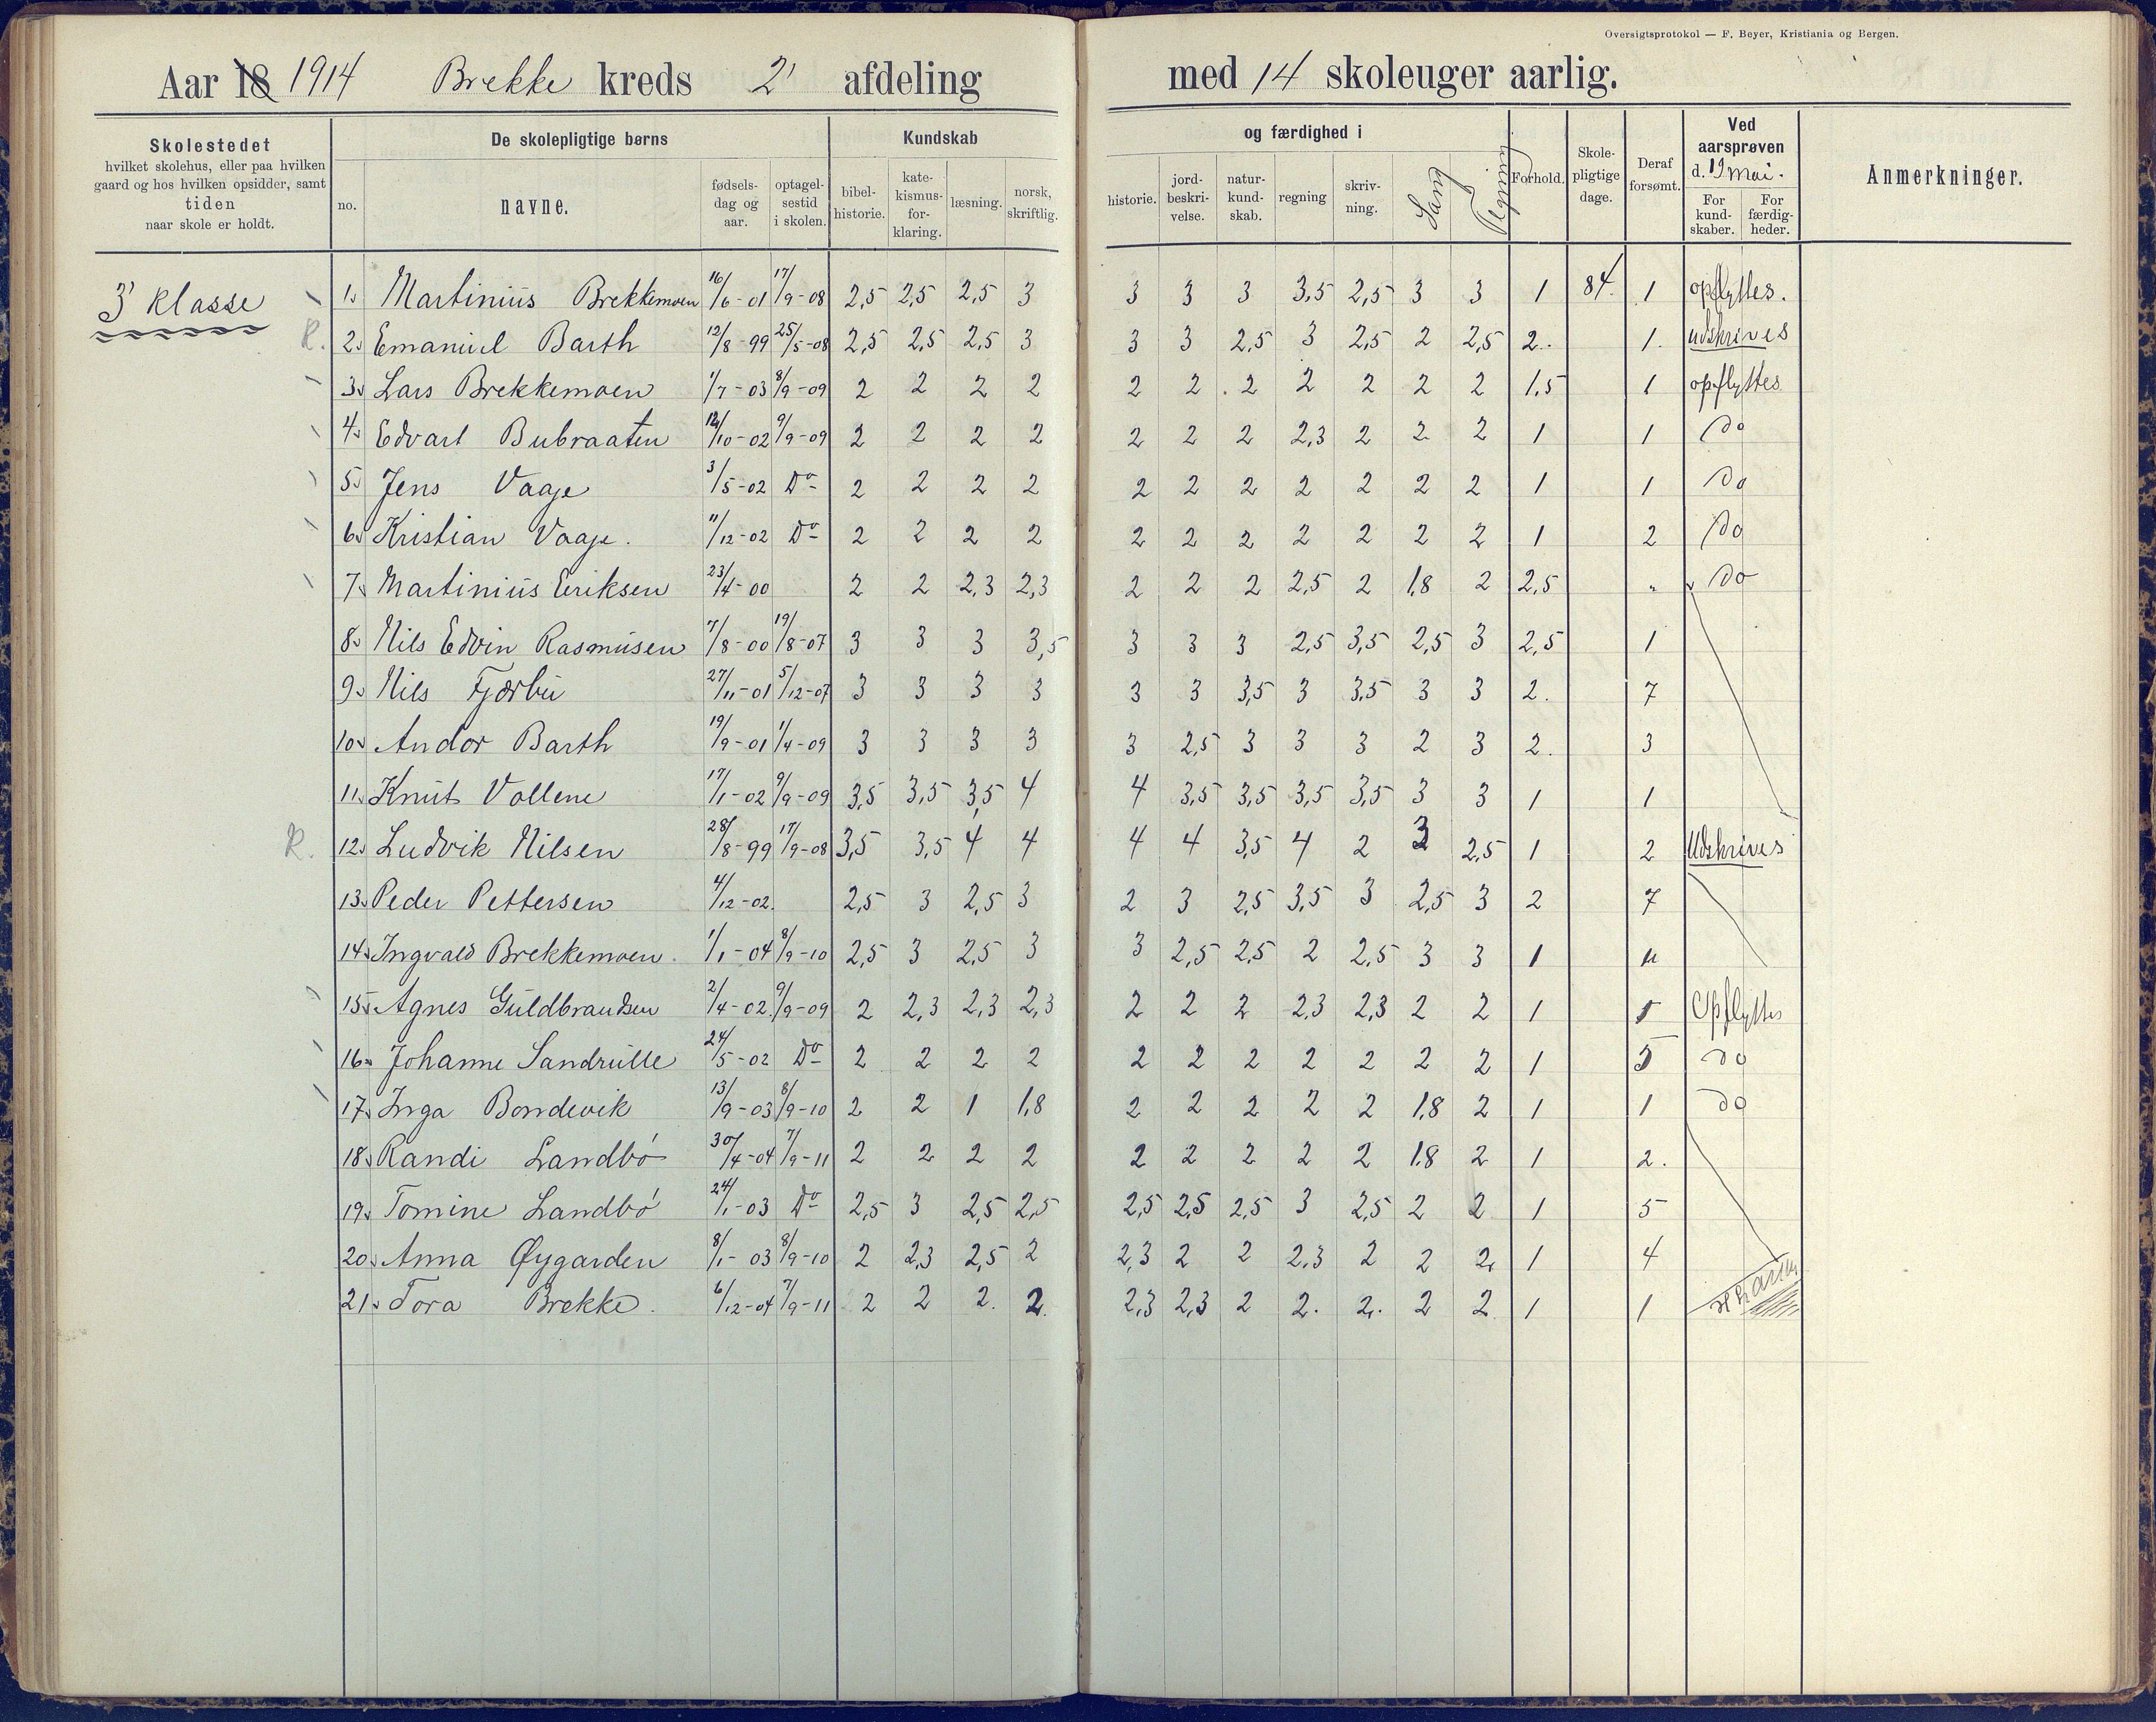 Oversigtsprotokol — F. Beyer, Kristiania og Bergen.
Aar 18 1914 Brekke kreds 2' afdeling med 14 skoleuger aarlig.
Skolestedet hvilket skolehus, eller paa hvilken gaard og hos hvilken opsidder, samt tiden naar skole er holdt.
De skolepligtige børns
no. navne. fødselsdag og aar. optagelsestid i skolen.
Kundskab og færdighed i
bibelhistorie. katekismusforklaring. læsning. norsk, skriftlig. historie. jordbeskrivelse. naturkundskab. regning skrivning. Sang Tegning
Forhold. Skolepligtige dage. Deraf forsømt.
Ved aarsprøven d. 19 mai.
For kundskaber. For færdigheder.
Anmerkninger.
3' klasse
1. Martinius Brekkemoen 16/6-01 17/9-08 2,5 2,5 2,5 3 3 3 3 3,5 2,5 3 3 1 84. 1 opflyttes.
R. 2. Emanuel Barth 12/8-99 25/5-08 2,5 2,5 2,5 3 3 3 2,5 3 2,5 2 2,5 2. 1. udskrives
3. Lars Brekkemoen 1/7-03 8/9-09 2 2 2 2 2 2 2 2 2 2 2 1,5 1 opflyttes
4. Edvart Bubraaten 12/10-02 9/9-09 2 2 2 2 2 2 2 2,3 2 2 2 1 1 do
5. Jens Vaaje 3/5-02 Do 2 2 2 2 2 2 2 2 2 2 2 1 1 do
6. Kristian Vaaje. 11/12-02 Do 2 2 2 2 2 2 2 2 2 2 2 1 2 do
7. Martinius Eriksen 23/4-00 2 2 2,3 2,3 2 2 2 2,5 2 1,8 2 2,5 " do
8. Nils Edvin Rasmusen 7/8-00 19/8-07 3 3 3 3,5 3 3 3 2,5 3,5 2,5 3 2,5 1
9. Nils Fjærbu 27/11-01 5/12-07 3 3 3 3 3 3 3,5 3 3,5 3 3 2. 7
10. Andor Barth 19/9-01 1/4-09 3 3 3 3 3 2,5 3 3 3 2 3 2. 3
11. Knut Vollene 17/1-02 9/9-09 3,5 3,5 3,5 4 4 3,5 3,5 3,5 3,5 3 3 1 1
R. 12. Ludvik Nilsen 28/8-99 17/9-08 3,5 3,5 4 4 4 4 3,5 4 2 3 2,5 1 2 Udskrives
13. Peder Pettersen 4/12-02. 2,5 3 2,5 3 2 3 2,5 3,5 3 2,5 3 2 7
14. Ingvald Brekkemoen. 1/1-04 8/9-10 2,5 3 2,5 3 3 2,5 2,5 2 2,5 3 3 1 "
15. Agnes Guldbrandsen 2/4-02. 9/9-09 2 2,3 2,3 2,3 2 2 2 2,3 2,3 2 2 1 1 Opflyttes
16. Johanne Sandrulle 24/5-02 Do 2 2 2 2 2 2 2 2 2 2 2 1 5 do
17. Inga Bondevik 13/9-03 8/9-10 2 2 1 1,8 2 2 2 2 2 1,8 2 1 1 do
18. Randi Landbö 30/4-04 7/9-11 2 2 2 2 2 2 2 2 2 1,8 2 1 2.
19. Tomine Landbö 24/1-03 Do 2,5 3 2,5 2,5 2,5 2,5 2,5 3 2,5 2 2 1 5
20. Anna Øygarden 8/1-03 8/9-10 2 2,3 2,5 2 2,3 2 2 2,3 2 2 2 1 4
21. Tora Brekke. 6/12-04 7/9-11 2 2 2. 2. 2,3 2,3 2 2. 2. 2 2 1 1